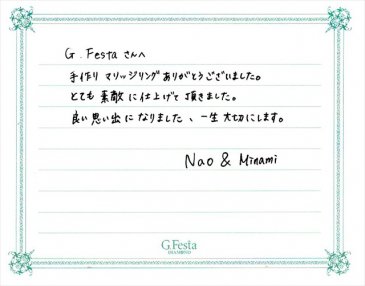 G. Festa さんへ
手作り マリッジリング ありがとうございました。
とても 素敵 に 仕上げて 頂きました。
良い 思い出 に なりました、一生 大切にします。
Nao & Minami
G.Festa
DIAMOND